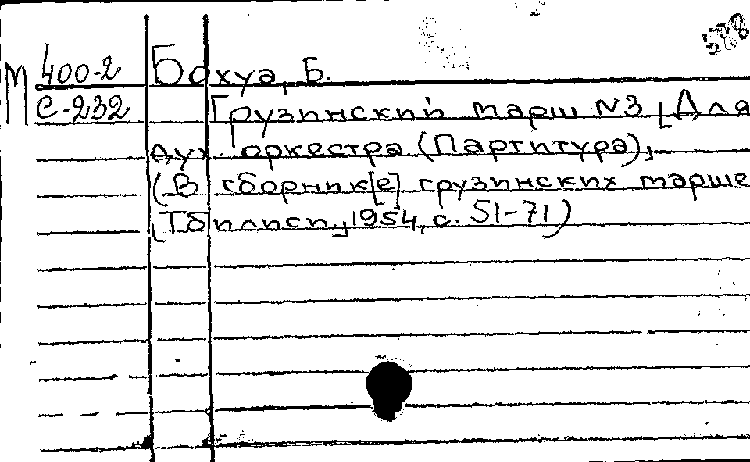 588
М 400-2 Бохуа, Б.
С-232 Грузинский марш N3 [Для
дух. оркестра (Партитура),
(В сборник[е] грузинских марше
[Тбилиси], 1954, с. 51-71)